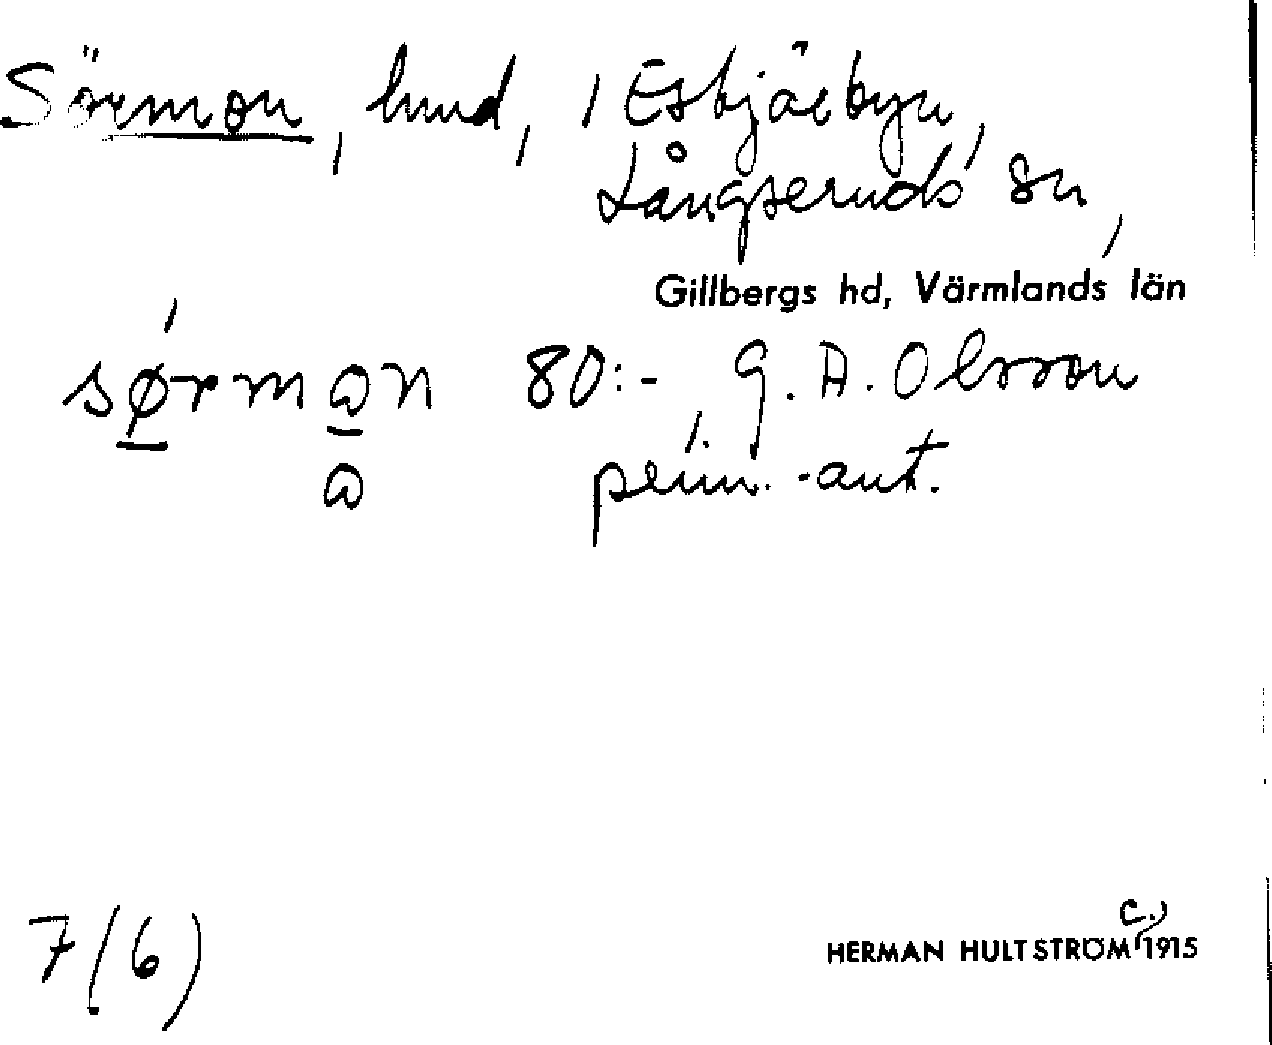 Sörmon, hmd, i Esbjörbyn,
Långseruds sn,
Gillbergs hd, Värmlands län
sørmɷn 80:-, G. A. Olsson
ɷ pens.-ant.
7 (6)
c.)
HERMAN HULTSTRÖM 1915